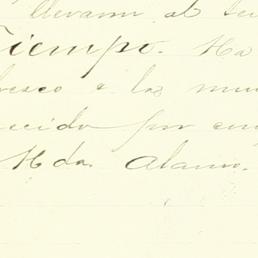 llevaron al
Tiempo. Ha
fresco a las
ecido por
Hda. Alamo.